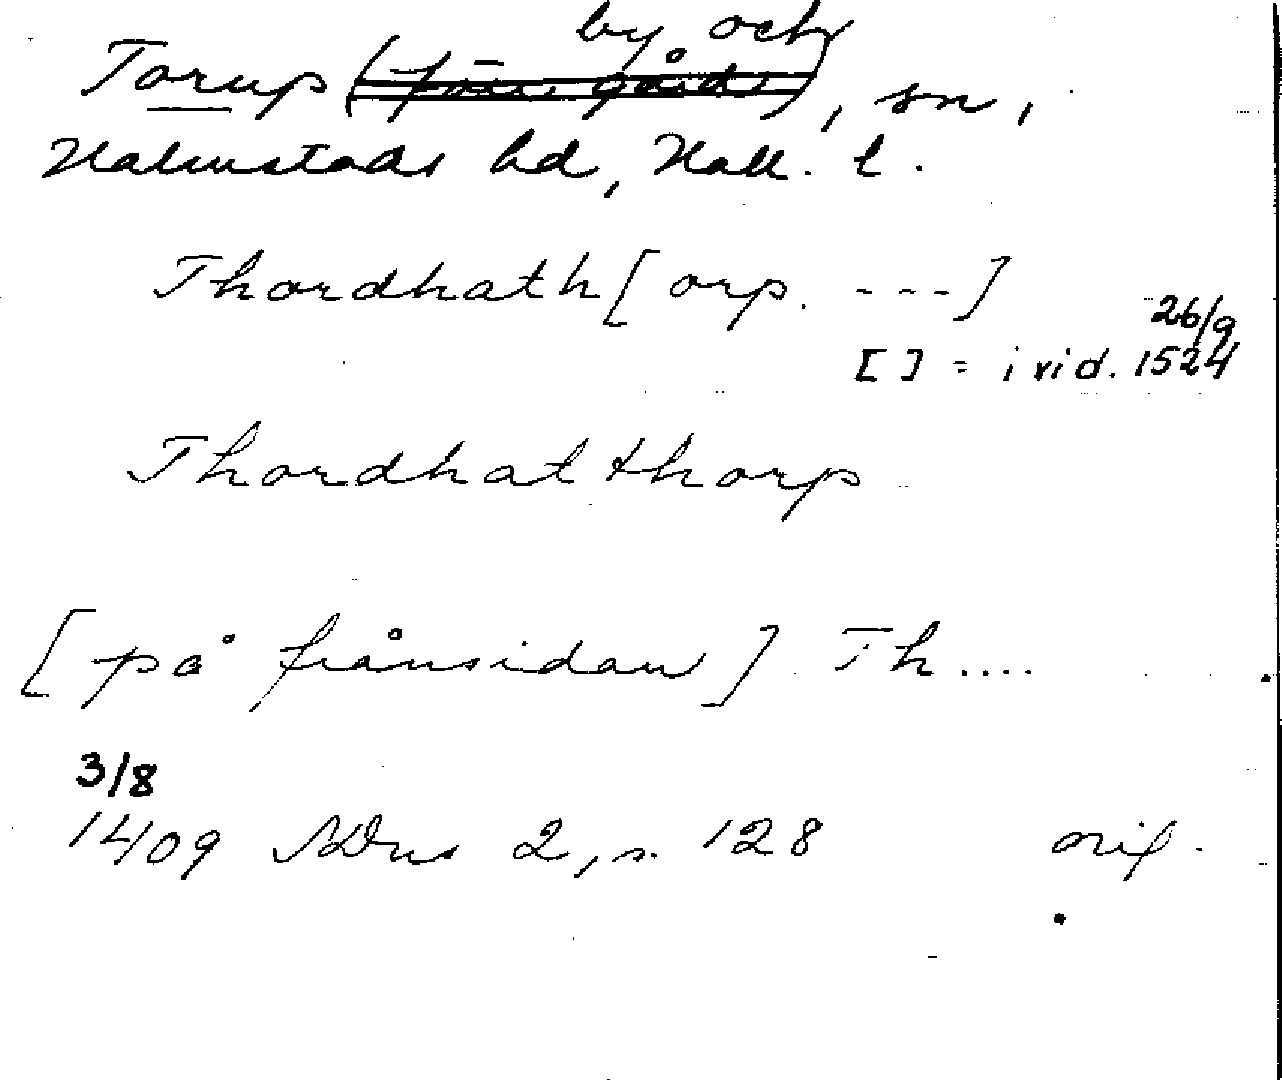 by och
Torup (förr gård), sn,
Halmstads hd, Hall. l.
Thordhath[orp. ---]
26/9
[ ] = i vid. 1524
Thordhatthorp
[på frånsidan] Th....
3/8
1409 SDns 2, s. 128 orig.